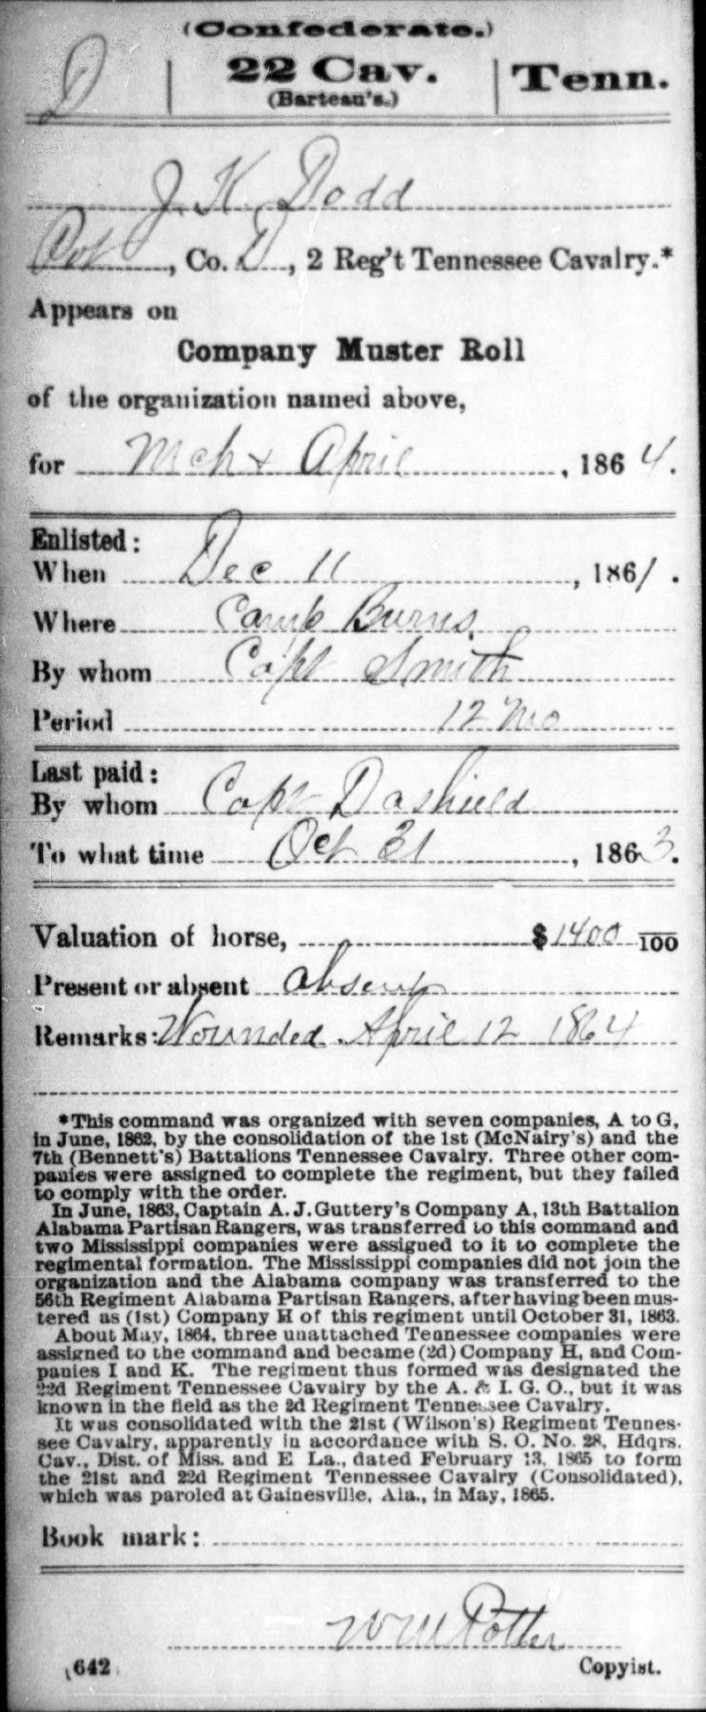 (Confederate.)
D | 22 Cav. | Tenn.
(Barteau's.)
J. K. Dodd
Pvt, Co. D, 2 Reg't Tennessee Cavalry.*
Appears on
Company Muster Roll
of the organization named above,
for Mch & April, 1864.
Enlisted:
When Dec 11, 1861.
Where Camp Burns.
By whom Capt Smith
Period 12 Mo
Last paid:
By whom Capt Dashield
To what time Oct 31, 1863.
Valuation of horse, $1400 100
Present or absent absent
Remarks: Wounded April 12 1864
*This command was organized with seven companies, A to G,
in June, 1862, by the consolidation of the 1st (McNairy's) and the
7th (Bennett's) Battalions Tennessee Cavalry. Three other com-
panies were assigned to complete the regiment, but they failed
to comply with the order.
In June, 1863, Captain A. J. Guttery's Company A, 13th Battalion
Alabama Partisan Rangers, was transferred to this command and
two Mississippi companies were assigned to it to complete the
regimental formation. The Mississippi companies did not join the
organization and the Alabama company was transferred to the
56th Regiment Alabama Partisan Rangers, after having been mus-
tered as (1st) Company H of this regiment until October 31, 1863.
About May, 1864, three unattached Tennessee companies were
assigned to the command and became (2d) Company H, and Com-
panies I and K. The regiment thus formed was designated the
22d Regiment Tennessee Cavalry by the A. & I. G. O., but it was
known in the field as the 2d Regiment Tennessee Cavalry.
It was consolidated with the 21st (Wilson's) Regiment Tennes-
see Cavalry, apparently in accordance with S. O. No. 28, Hdqrs.
Cav., Dist. of Miss. and E La., dated February 13, 1865 to form
the 21st and 22d Regiment Tennessee Cavalry (Consolidated),
which was paroled at Gainesville, Ala., in May, 1865.
Book mark:
Wm Potter
(642) Copyist.